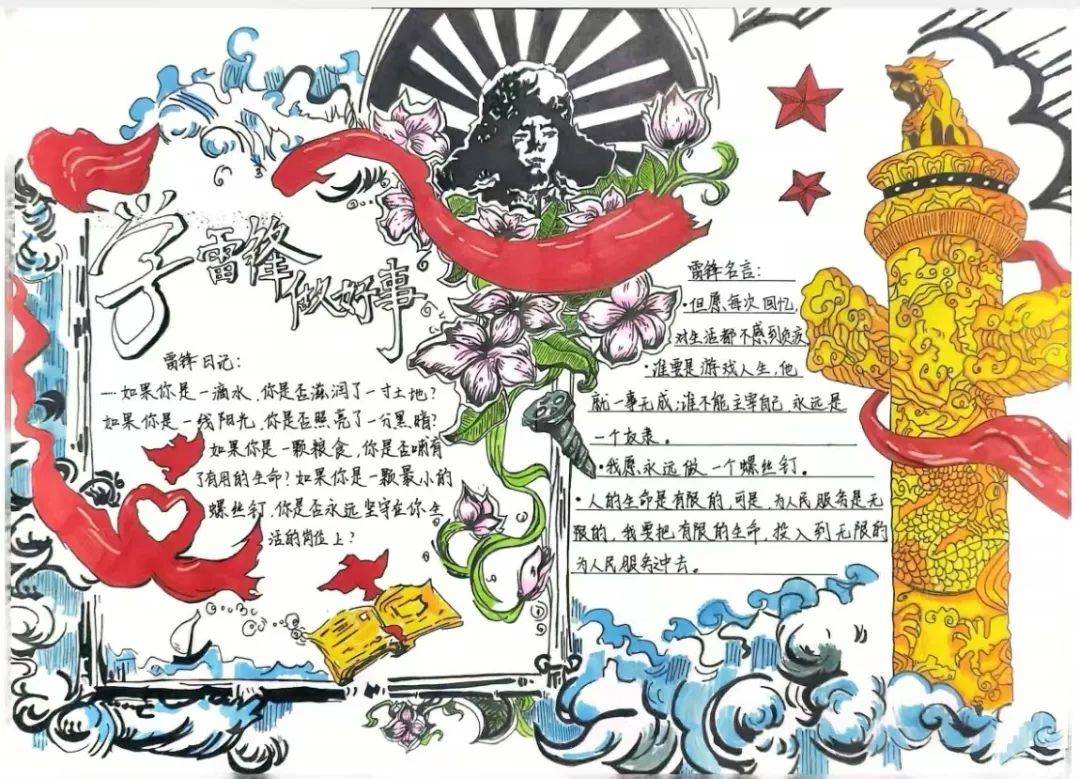 学雷锋
做好事
雷锋日记:
一如果你是一滴水,你是否滋润了一寸土地?
如果你是一线阳光,你是否照亮了一分黑暗?
如果你是一颗粮食,你是否哺育
了有用的生命?如果你是一颗最小的
螺丝钉,你是否永远坚守在你生
活的岗位上?
雷锋名言:
·但愿,每次回忆,
对生活都不感到负疚
·谁要是游戏人生,他
就一事无成;谁不能主宰自己 永远是
一个奴隶。
·我愿永远做一个螺丝钉。
·人的生命是有限的,可是,为人民服务是无
限的,我要把有限的生命,投入到无限的
为人民服务之中去。